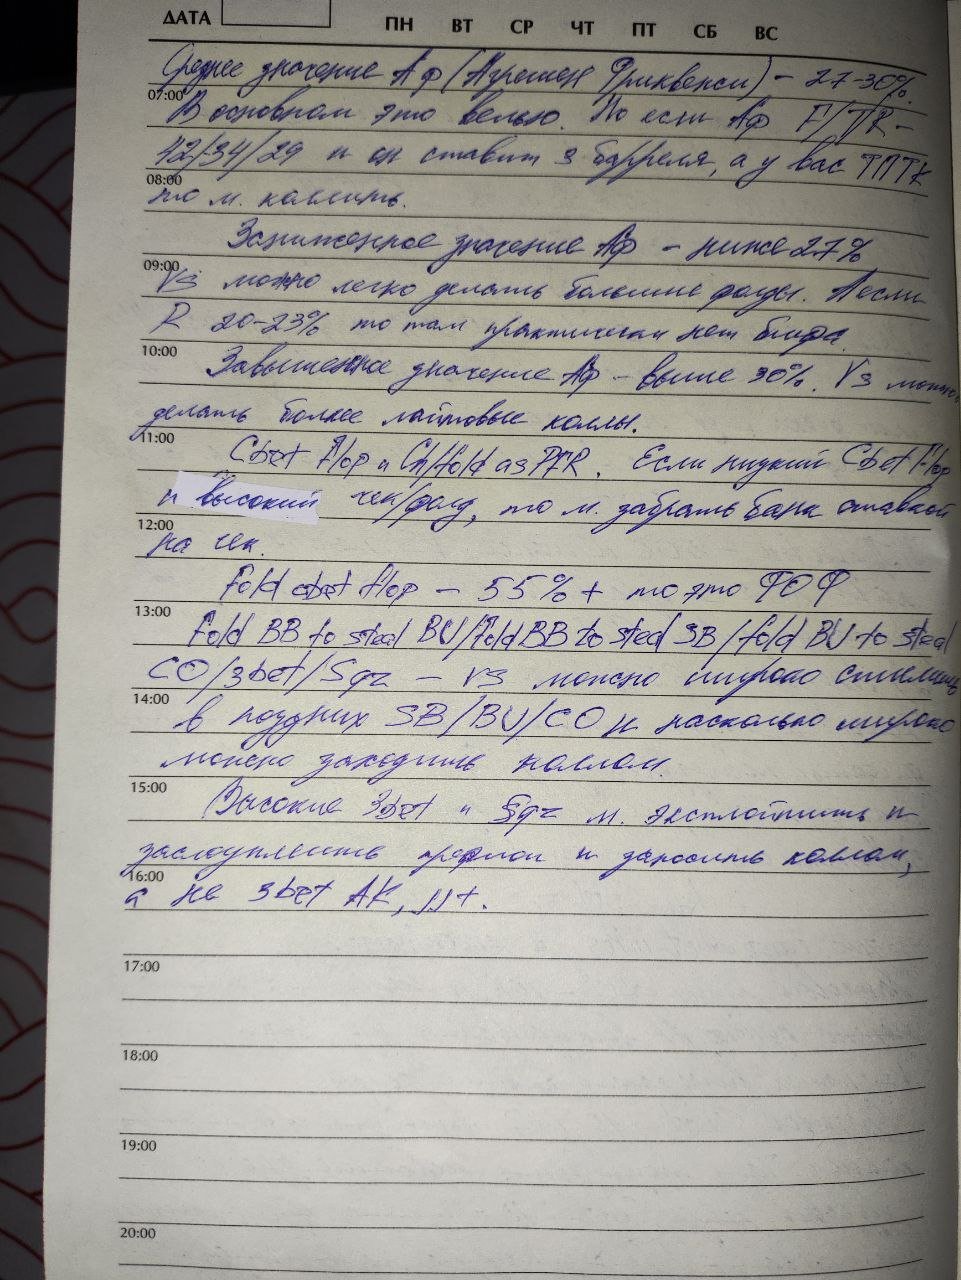 ДАТА ПН ВТ СР ЧТ ПТ СБ ВС
Среднее значение Аф (Агрешен Фриквенси) - 27-30%.
07:00
В основном это велью. Но если Аф F/T/R -
42/34/29 и он ставит 3 барреля, а у вас ТПТК
08:00
то м. коллить.
Заниженное значение Аф - ниже 27%
09:00
Vs можно легко делать большие фолды. А если
R 20-23% то там практически нет блефа.
10:00
Завышенное значение Аф - выше 30%. Vs можно
делать более лайтовые коллы.
11:00
Cbet Flop и Ch/fold as PFR. Если низкий Cbet Flop
и высокий чек/фолд, то м. забрать банк ставкой
12:00
на чек.
Fold cbet flop - 55%+ то это ФОФ
13:00
Fold BB to steal BU/Fold BB to steal SB/fold BU to steal
CO/3bet/Sqz - vs можно широко стилить
14:00
в поздних SB/BU/CO и насколько широко
можно заходить коллом.
15:00
Высокие 3bet и Sqz м. эксплойтить и
заслоуплеить префлоп и заносить коллом,
16:00
а не 3bet AK, JJ+.
17:00
18:00
19:00
20:00